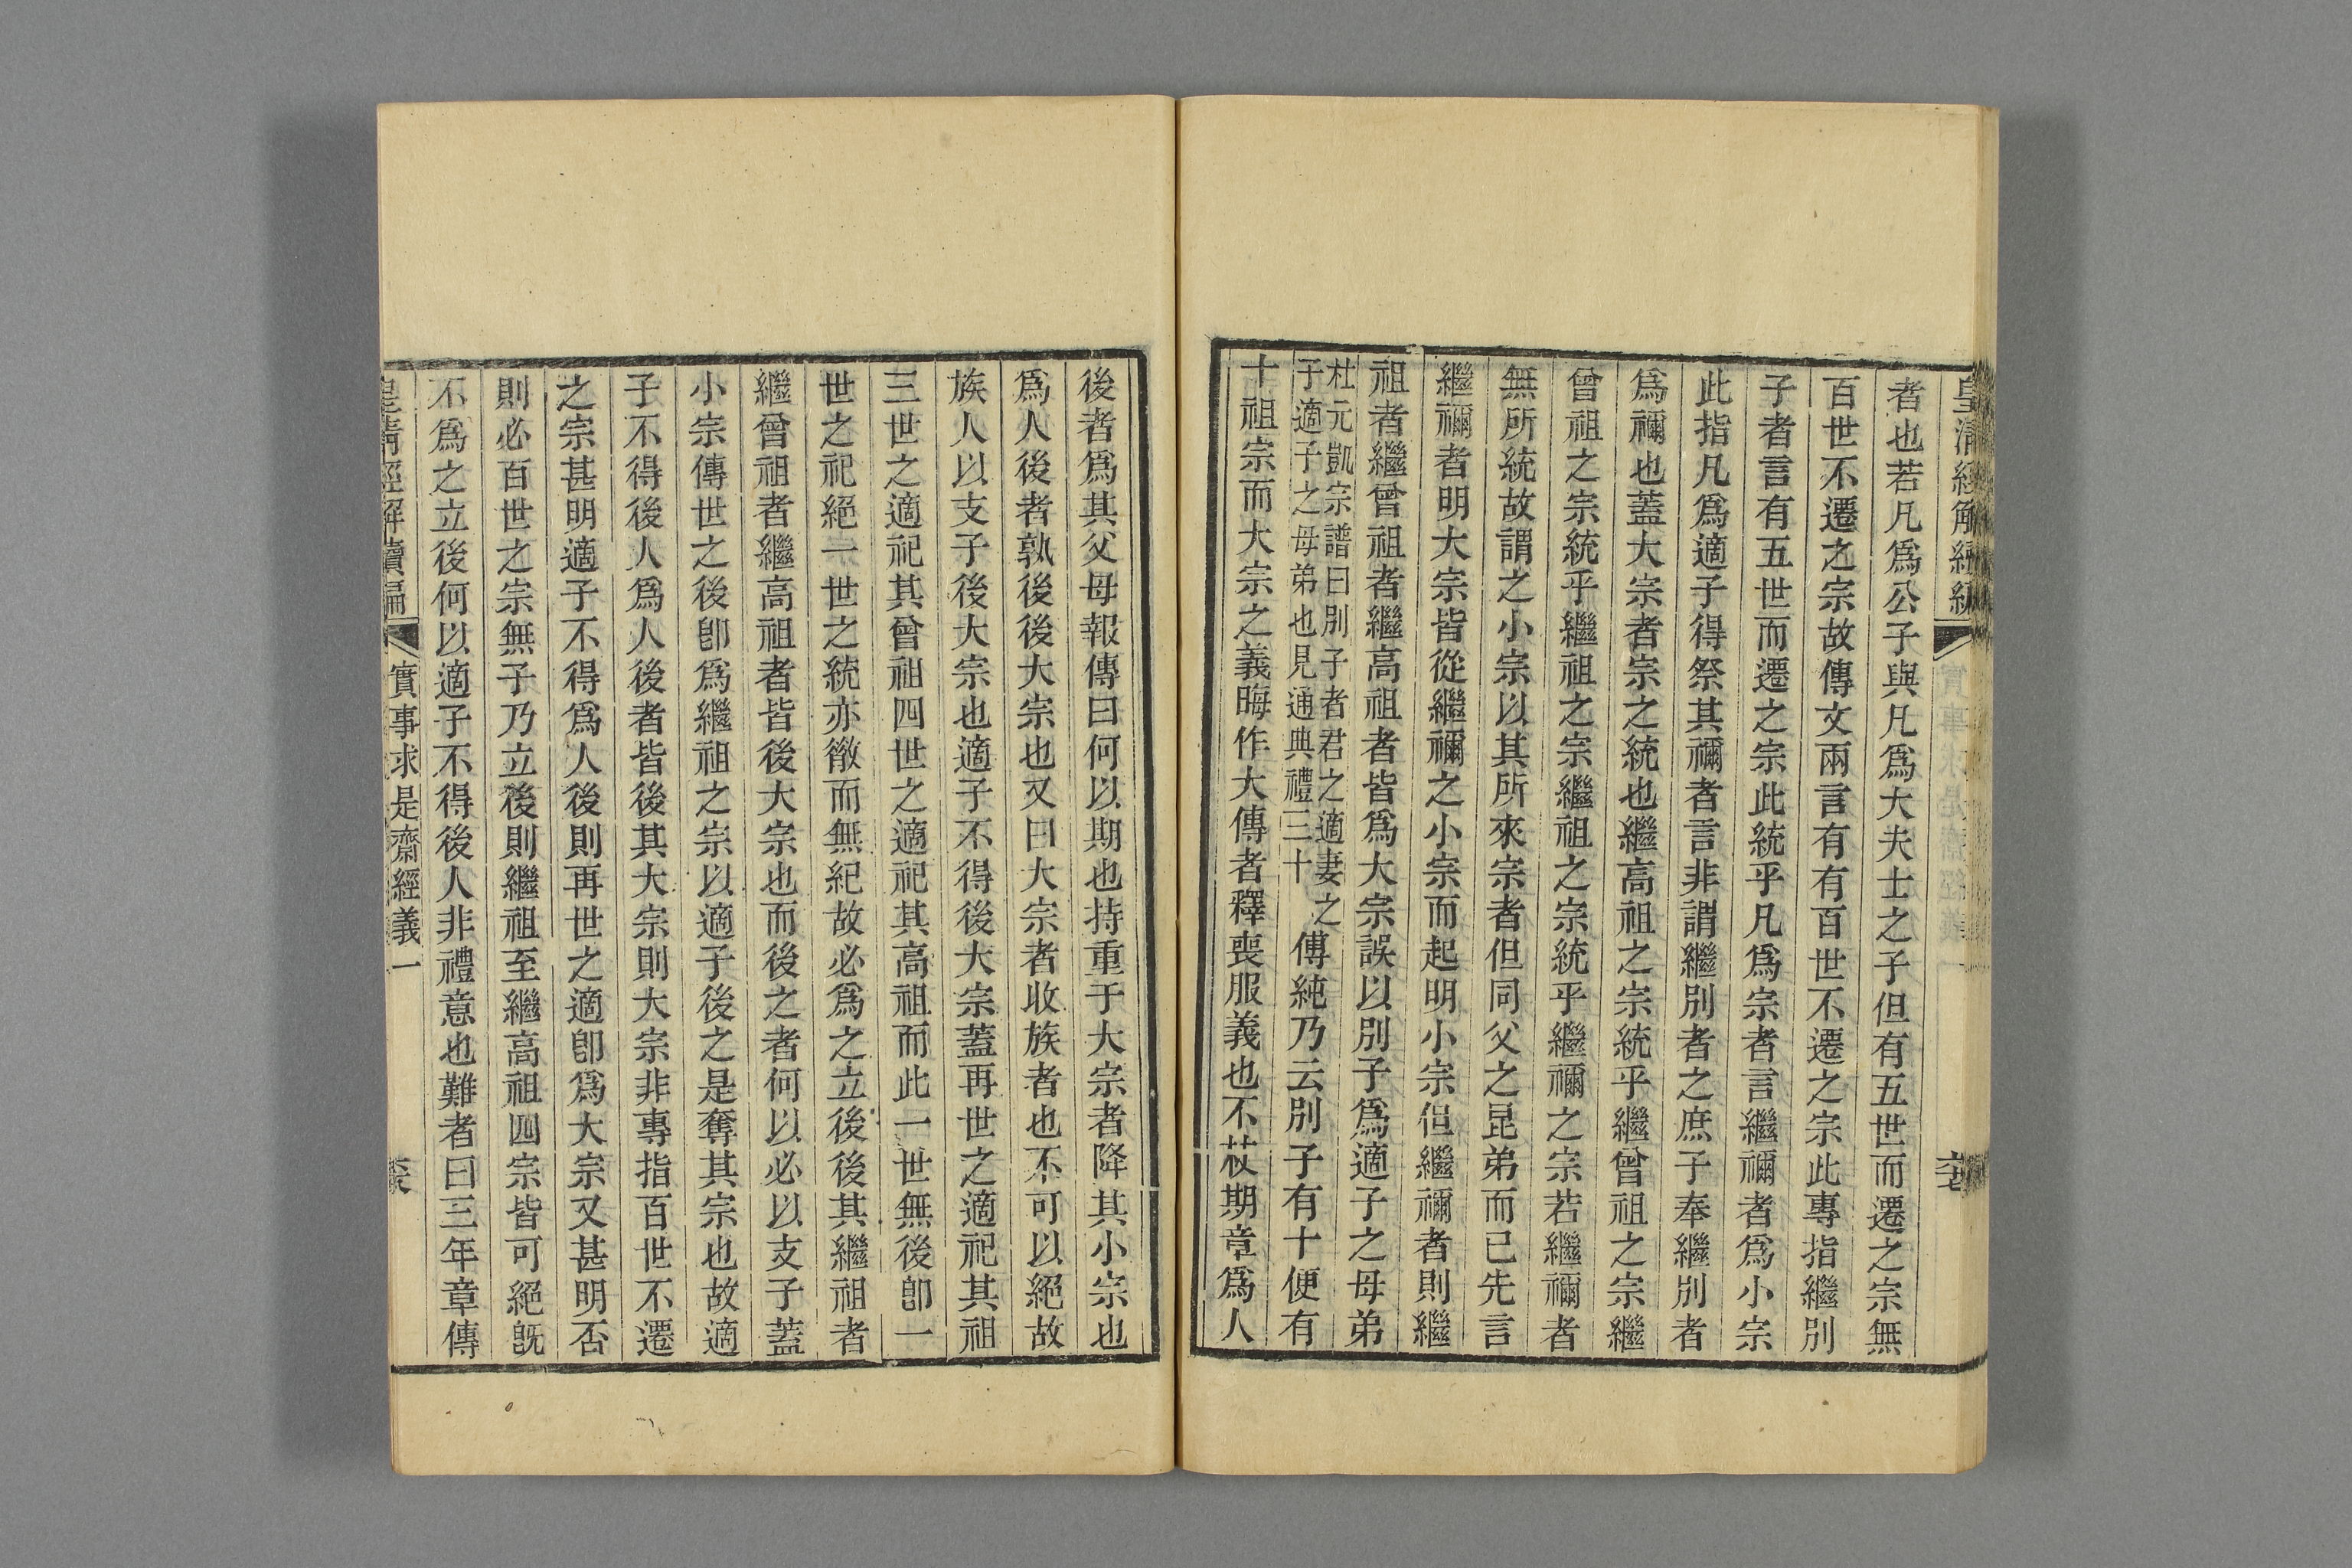 者也若凡爲公子與凡爲大夫士之子但有五世而遷之宗無
百世不遷之宗故傳文兩言有有百世不遷之宗此專指繼別
子者言有五世而遷之宗此統乎凡爲宗者言繼禰者爲小宗
此指凡爲適子得祭其禰者言非謂繼別者之庶子奉繼別者
爲禰也蓋大宗者宗之統也繼高祖之宗統乎繼曾祖之宗繼
曾祖之宗統乎繼祖之宗繼祖之宗統乎繼禰之宗若繼禰者
無所統故謂之小宗以其所來宗者但同父之昆弟而已先言
繼禰者明大宗皆從繼禰之小宗而起明小宗但繼禰者則繼
祖者繼曾祖者繼高祖者皆爲大宗誤以別子爲適子之母弟
杜元凱宗譜曰別子者君之適妻之
子適子之母弟也見通典禮三十
傅純乃云別子有十便有
十祖宗而大宗之義晦作大傳者釋喪服義也不杖期章爲人
後者爲其父母報傳曰何以期也持重于大宗者降其小宗也
爲人後者孰後後大宗也又曰大宗者收族者也不可以絕故
族人以支子後大宗也適子不得後大宗蓋再世之適祀其祖
三世之適祀其曾祖四世之適祀其高祖而此一世無後卽一
世之祀絕一世之統亦徹而無紀故必爲之立後後其繼祖者
繼曾祖者繼高祖者皆後大宗也而後之者何以必以支子蓋
小宗傳世之後卽爲繼祖之宗以適子後之是奪其宗也故適
子不得後人爲人後者皆後其大宗則大宗非專指百世不遷
之宗甚明適子不得爲人後則再世之適卽爲大宗又甚明否
則必百世之宗無子乃立後則繼祖至繼高祖四宗皆可絕旣
不爲之立後何以適子不得後人非禮意也難者曰三年章傳
皇清經解續編
實事求是齋經義一